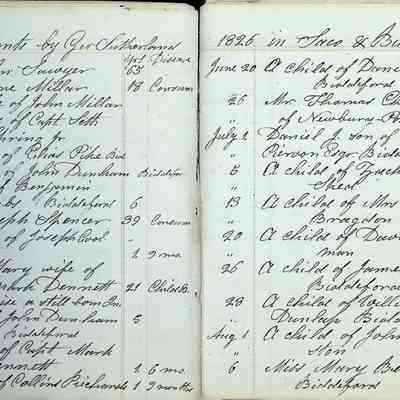 nts by Geo Sutherland
Yrs Disease
Sawyer 65
Millar 18 Consum
of John Millar
of Capt Seth
Jr
of Elias Pike Bid
John Dunham Biddefor
of Benjamin
by Biddeford 6
eph Spencer 39 Consum
of Joseph Cool "
1 9 mo.
Mary wife of
Dennett 21 Childb.
a still born In
John Dunham 5
Biddeford
of Capt Mark
nnett 1 6 mo.
of Collins Richards 1 9 months
1826 in Saco & Bi
June 20 A Child of Dan
Biddeford
26 Mr. Thomas Ch
" of Newbury-Po
July 1 Daniel J. son of
" Pierson Esqr. Bidd
5 A Child of Zach
" Shea
13 A Child of Mrs
" Bragdon
20 A Child of Dav
" man
26 A Child of Jame
" Biddeford
28 A Child of Willi
" Dunlap Bidd
Aug 1 A Child of John
" ton
6 Miss Mary Be
" Biddeford